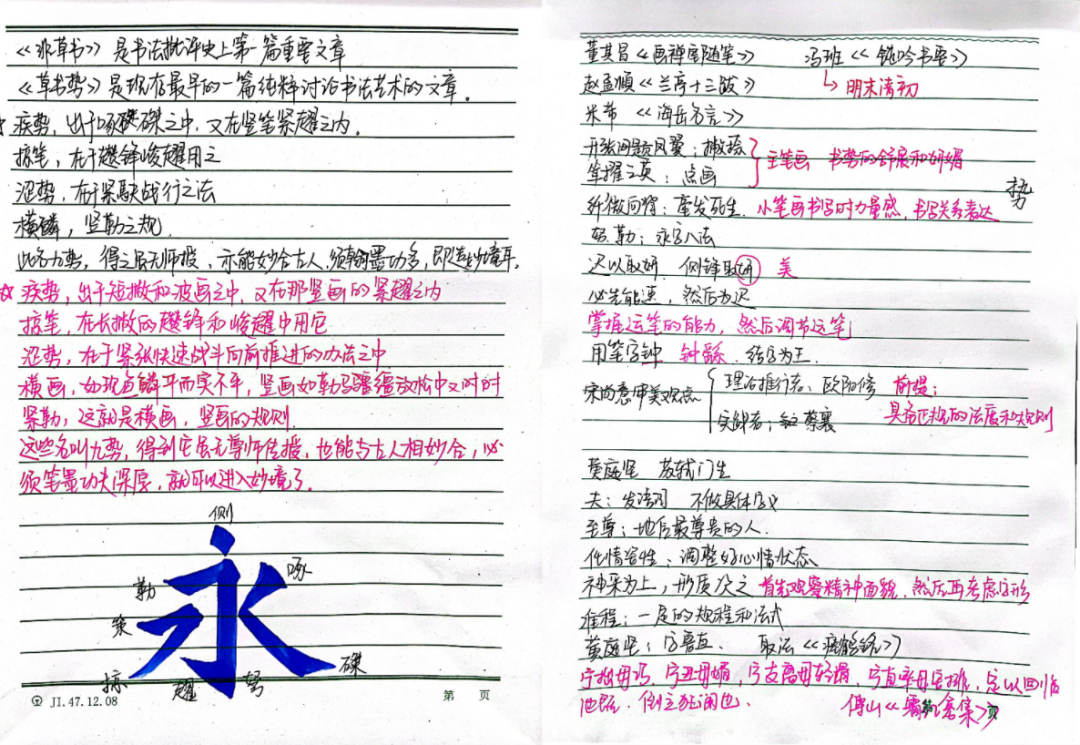 《非草书》是书法批评史上第一篇重要文章
《草书势》是现存最早的一篇纯粹讨论书法艺术的文章。
疾势,出于啄磔之中,又在竖笔紧趯之内。
掠笔,在于趱锋峻趯用之
涩势,在于紧駃战行之法
横鳞,竖勒之规
此名九势,得之虽无师授,亦能妙合古人,须翰墨功多,即造妙境耳。
☆疾势,出于短撇和波画之中,又在那竖画的紧趯之内
掠笔,在长撇的趱锋和峻趯中用它
涩势,在于紧张快速战斗向前推进的办法之中
横画,如现鱼鳞平而实不平,竖画如勒马缰放松中又时时
紧勒,这就是横画,竖画的规则.
这些名叫九势,得到它虽无尊师传授,也能与古人相妙合,必
须笔墨功夫深厚,就可以进入妙境了。
侧
永
啄
勒
策
掠
趯
努
磔
JI.47.12.08
第 页
董其昌《画禅室随笔》 冯班《钝吟书要》
赵孟頫《兰亭十三跋》 ↳明末清初
米芾 《海岳名言》
撇捺
主笔画 书势的舒展和妍媚
点画
势
纤微向背:毫发死生. 小笔画书写时力量感,书写关系表达
努勒:永字八法
迟以取妍 侧锋取妍 美
必先能速,然后为迟
掌握运笔的能力,然后调节这笔
用笔字钟 钟繇. 结字为王.
宋尚意审美观点 理论推行者:欧阳修 前提:
实践者: 蔡襄 具有正规的法度和规则
黄庭坚 苏轼门生
夫:发语词 不做具体含义
至尊:地位最尊贵的人.
任情恣性:调整好心情状态
神采为上,形质次之 首先观察精神面貌,然后再考虑字形
准程:一定的规程和法式
黄庭坚:字鲁直. 取法《瘗鹤铭》
宁拙毋巧,宁丑毋媚,宁支离毋轻滑,宁直率毋安排,足以回临
池既倒之狂澜也. 傅山《霜红龛集》页